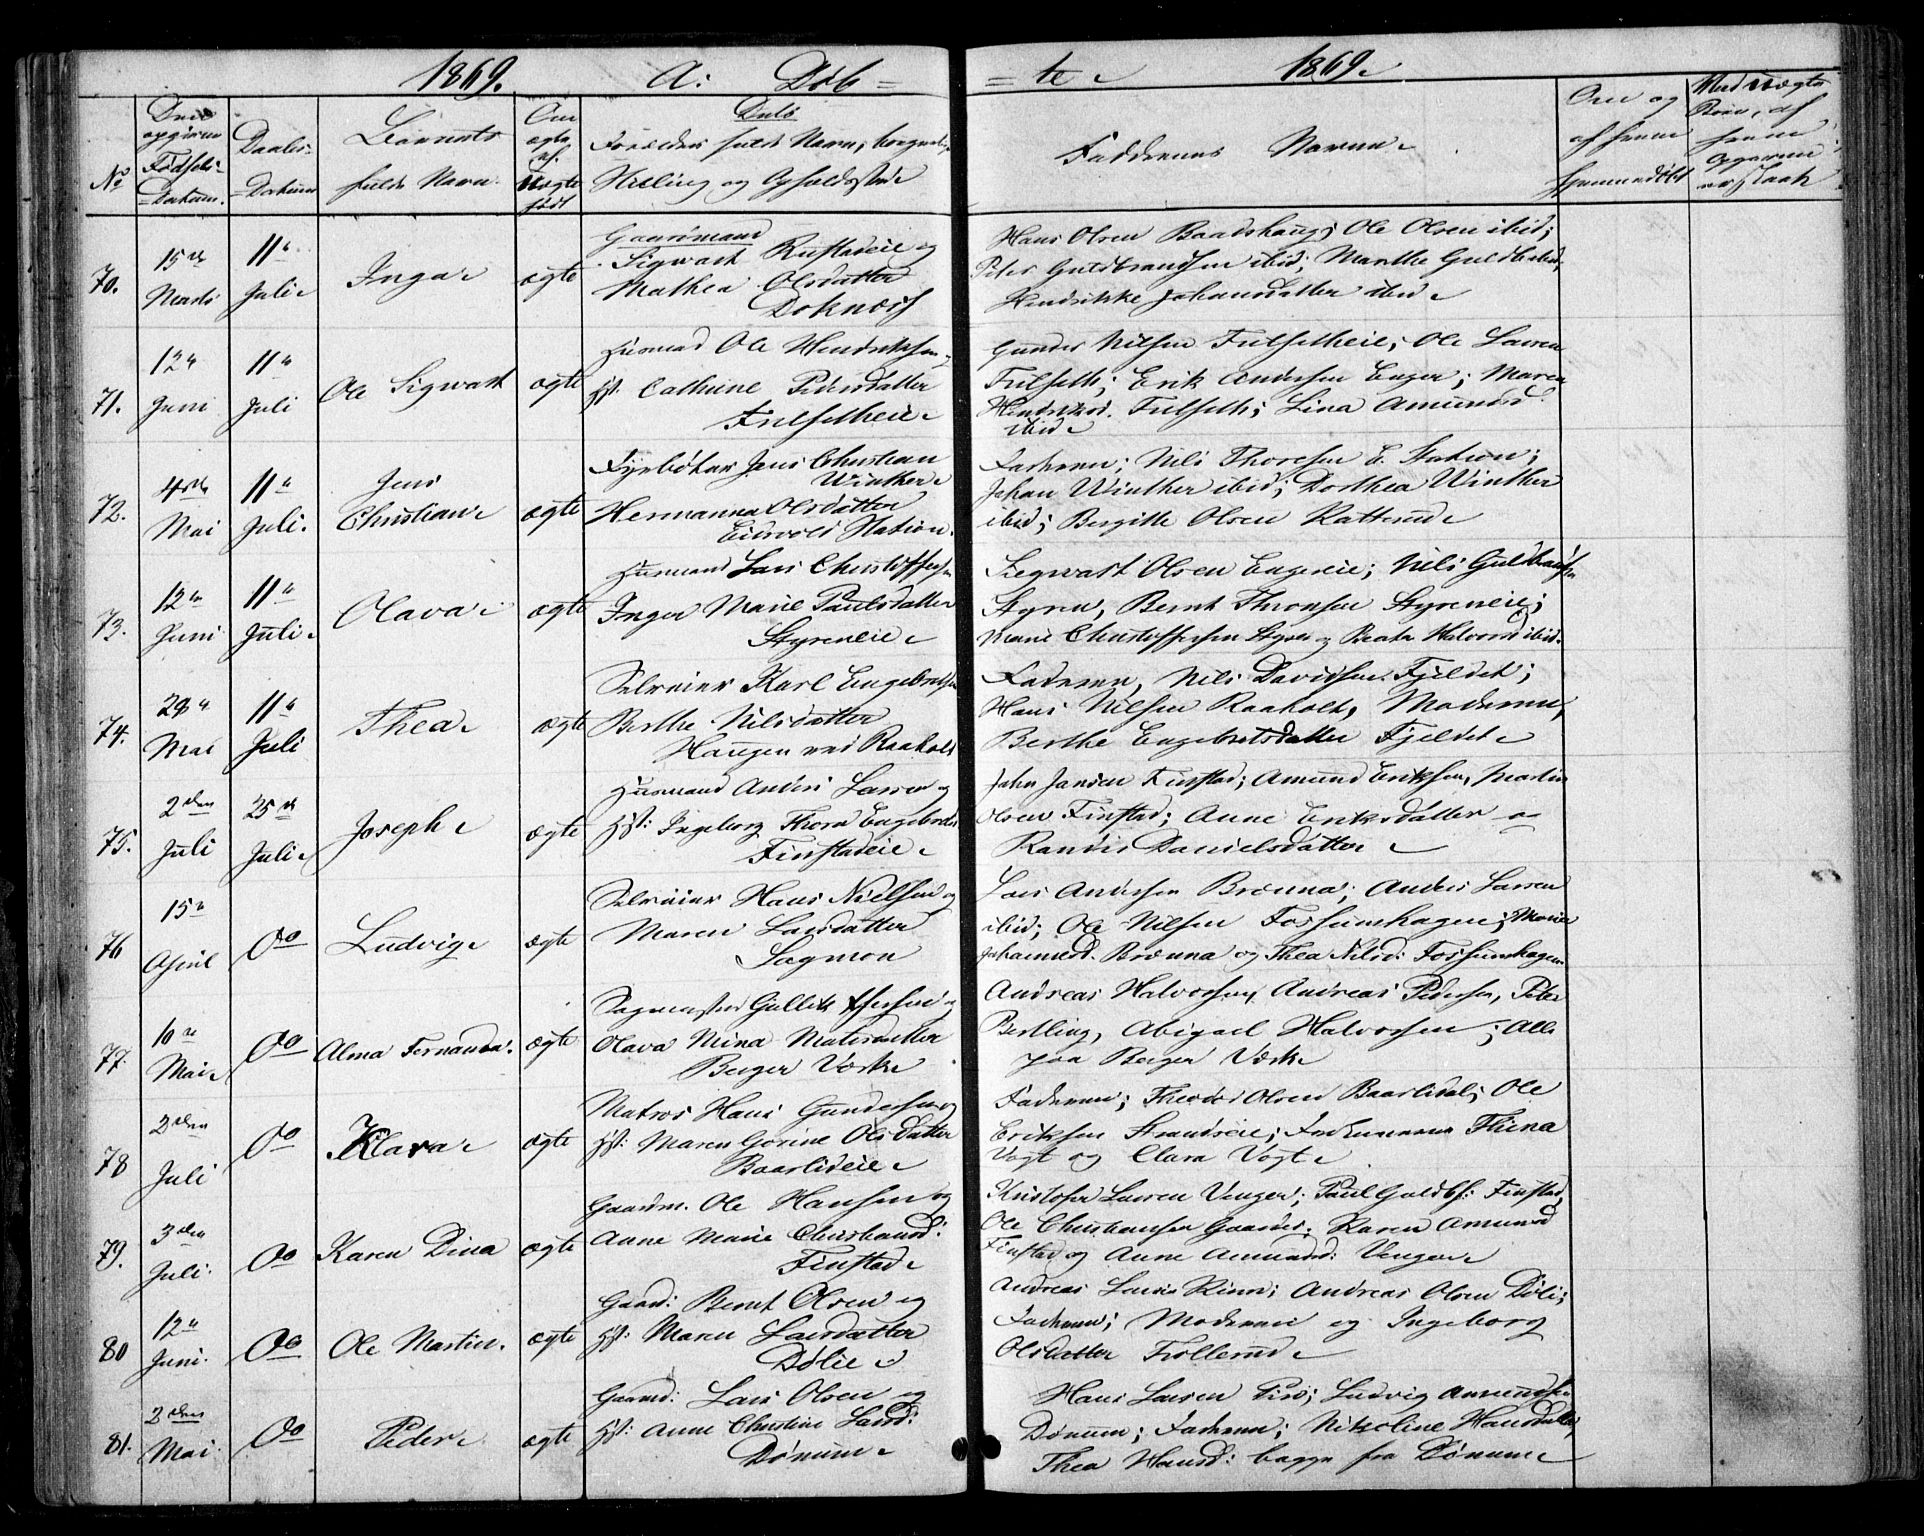 1869. A: Døb =
= te 1869
No
Den opgivne Fødsels-Datum.
Daabs-Datum
Barnets fulde Navn.
Om ægte el. Uægte født
Dets Forældres fulde Navn, borgerlige Stilling og Opholdssted
Faddrenes Navne
Om og af hvem hjemmedøbt
70. 15de Marts 11te Juli Inga ægte
Gaardmand
Sigwart Rustadeie og
Mathea Olsdatter
Doknæss
Hans Olsen Baadshaug; Ole Olsen ibid;
Peter Guldbrandsen ibid; Marthe Guldb: ibid;
Hendrikke Johansdatter ibid
71. 12te Juni 11te Juli Ole Sigwart ægte
Husmand Ole Hendriksen
Hst: Cathrine Pedersdatter
Fulsetheie
Gunder Nilsen Fulsetheie; Ole Larsen
Fulseth; Erik Andersen Enger; Maren
Hendriksd. Fulseth; Lina Amundsd.
ibid
72. 4de Mai 11te Juli. Jens Christian ægte
Fyrbøter Jens Christian
Winther
Hermanna Olsdatter
Eidsvold Station.
Faderen; Nils Thoresen E. Station;
Johan Winther ibid; Dorthea Winther
ibid; Bergitte Olsen Ratterud
73. 12te Juni 11te Juli Olava ægte
Husmand Lars Christoffersen
Inger Marie Paulsdatter
Styreneie
Siegwart Olsen Engereie; Nils Guldbrandsen
Styren, Bernt Thronsen Styreneie;
Marie Christoffersen Styren og Beate Halvorsd ibid.
74. 29de Mai 11te Juli Thea ægte
Selveier Karl Engebretsen
Berthe Nilsdatter
Haugen ved Raaholt
Faderen, Nils Davidsen Fjeldet;
Hans Nilsen Raaholt, Moderen,
Berthe Engebretsdatter Fjeldet
75. 2den Juli 25de Juli Joseph ægte
Husmand Anders Larsen og
Hst: Ingeborg Thora Engebretsd
Finstadeie
John Jansen Finstad; Amund Eriksen, Martin
Olsen Finstad; Anne Eriksdatter og
Randis Danielsdatter
76 15de April Do Ludvig ægte
Selveier Hans Nielsen og
Maren Larsdatter
Sagmon
Lars Andersen Brønna; Anders Larsen
ibid; Ole Nilsen Fossumhagen; Marie
Johannesd. Brønna og Thea Nilsd: Fossumhagen
77. 10de Mai Do Alma Fernanda. ægte
Sagmester Gullik Iversen og
Olava Mina Matisdatter
Berger Værk
Andreas Halvorsen, Andreas Pedersen, Peter
Bertling, Abigael Halvorsen; Alle
paa Berger Værk
78 2den Juli Do Klara ægte
Matros Hans Gundersen og
Hst: Maren Gorine Olsdatter
Baarlideie
Faderen; Theodor Olsen Baarlidal; Ole
Eriksen Strandseie; Thina
Vogt og Clara Vogt
79. 3den Juli. Do Karen Dina ægte
Gaardm. Ole Hansen og
Anne Marie Christiansd:
Finstad
Kristofer Larsen Venger; Paul Guldb: Finstad,
Ole Christiansen Gaarder; Karen Amundsd
Finstad og Anne Amundsd: Venger
80 12te Juni. Do Ole Martin. ægte
Gaard: Bernt Olsen og
Hst: Maren Larsdatter
Dølie
Andreas Larsen Rinn; Andreas Olsen Døli;
Faderen; Moderen og Ingeborg
Olsdatter Trollerud
81. 2den Mai. Do Peder ægte
Gaard: Lars Olsen og
Hst: Anne Christine Larsd:
Dønum
Hans Larsen Piro; Ludvig Amundsen
Dønum; Faderen; Nikoline Hansdatter,
Thea Hansd: begge fra Dønum